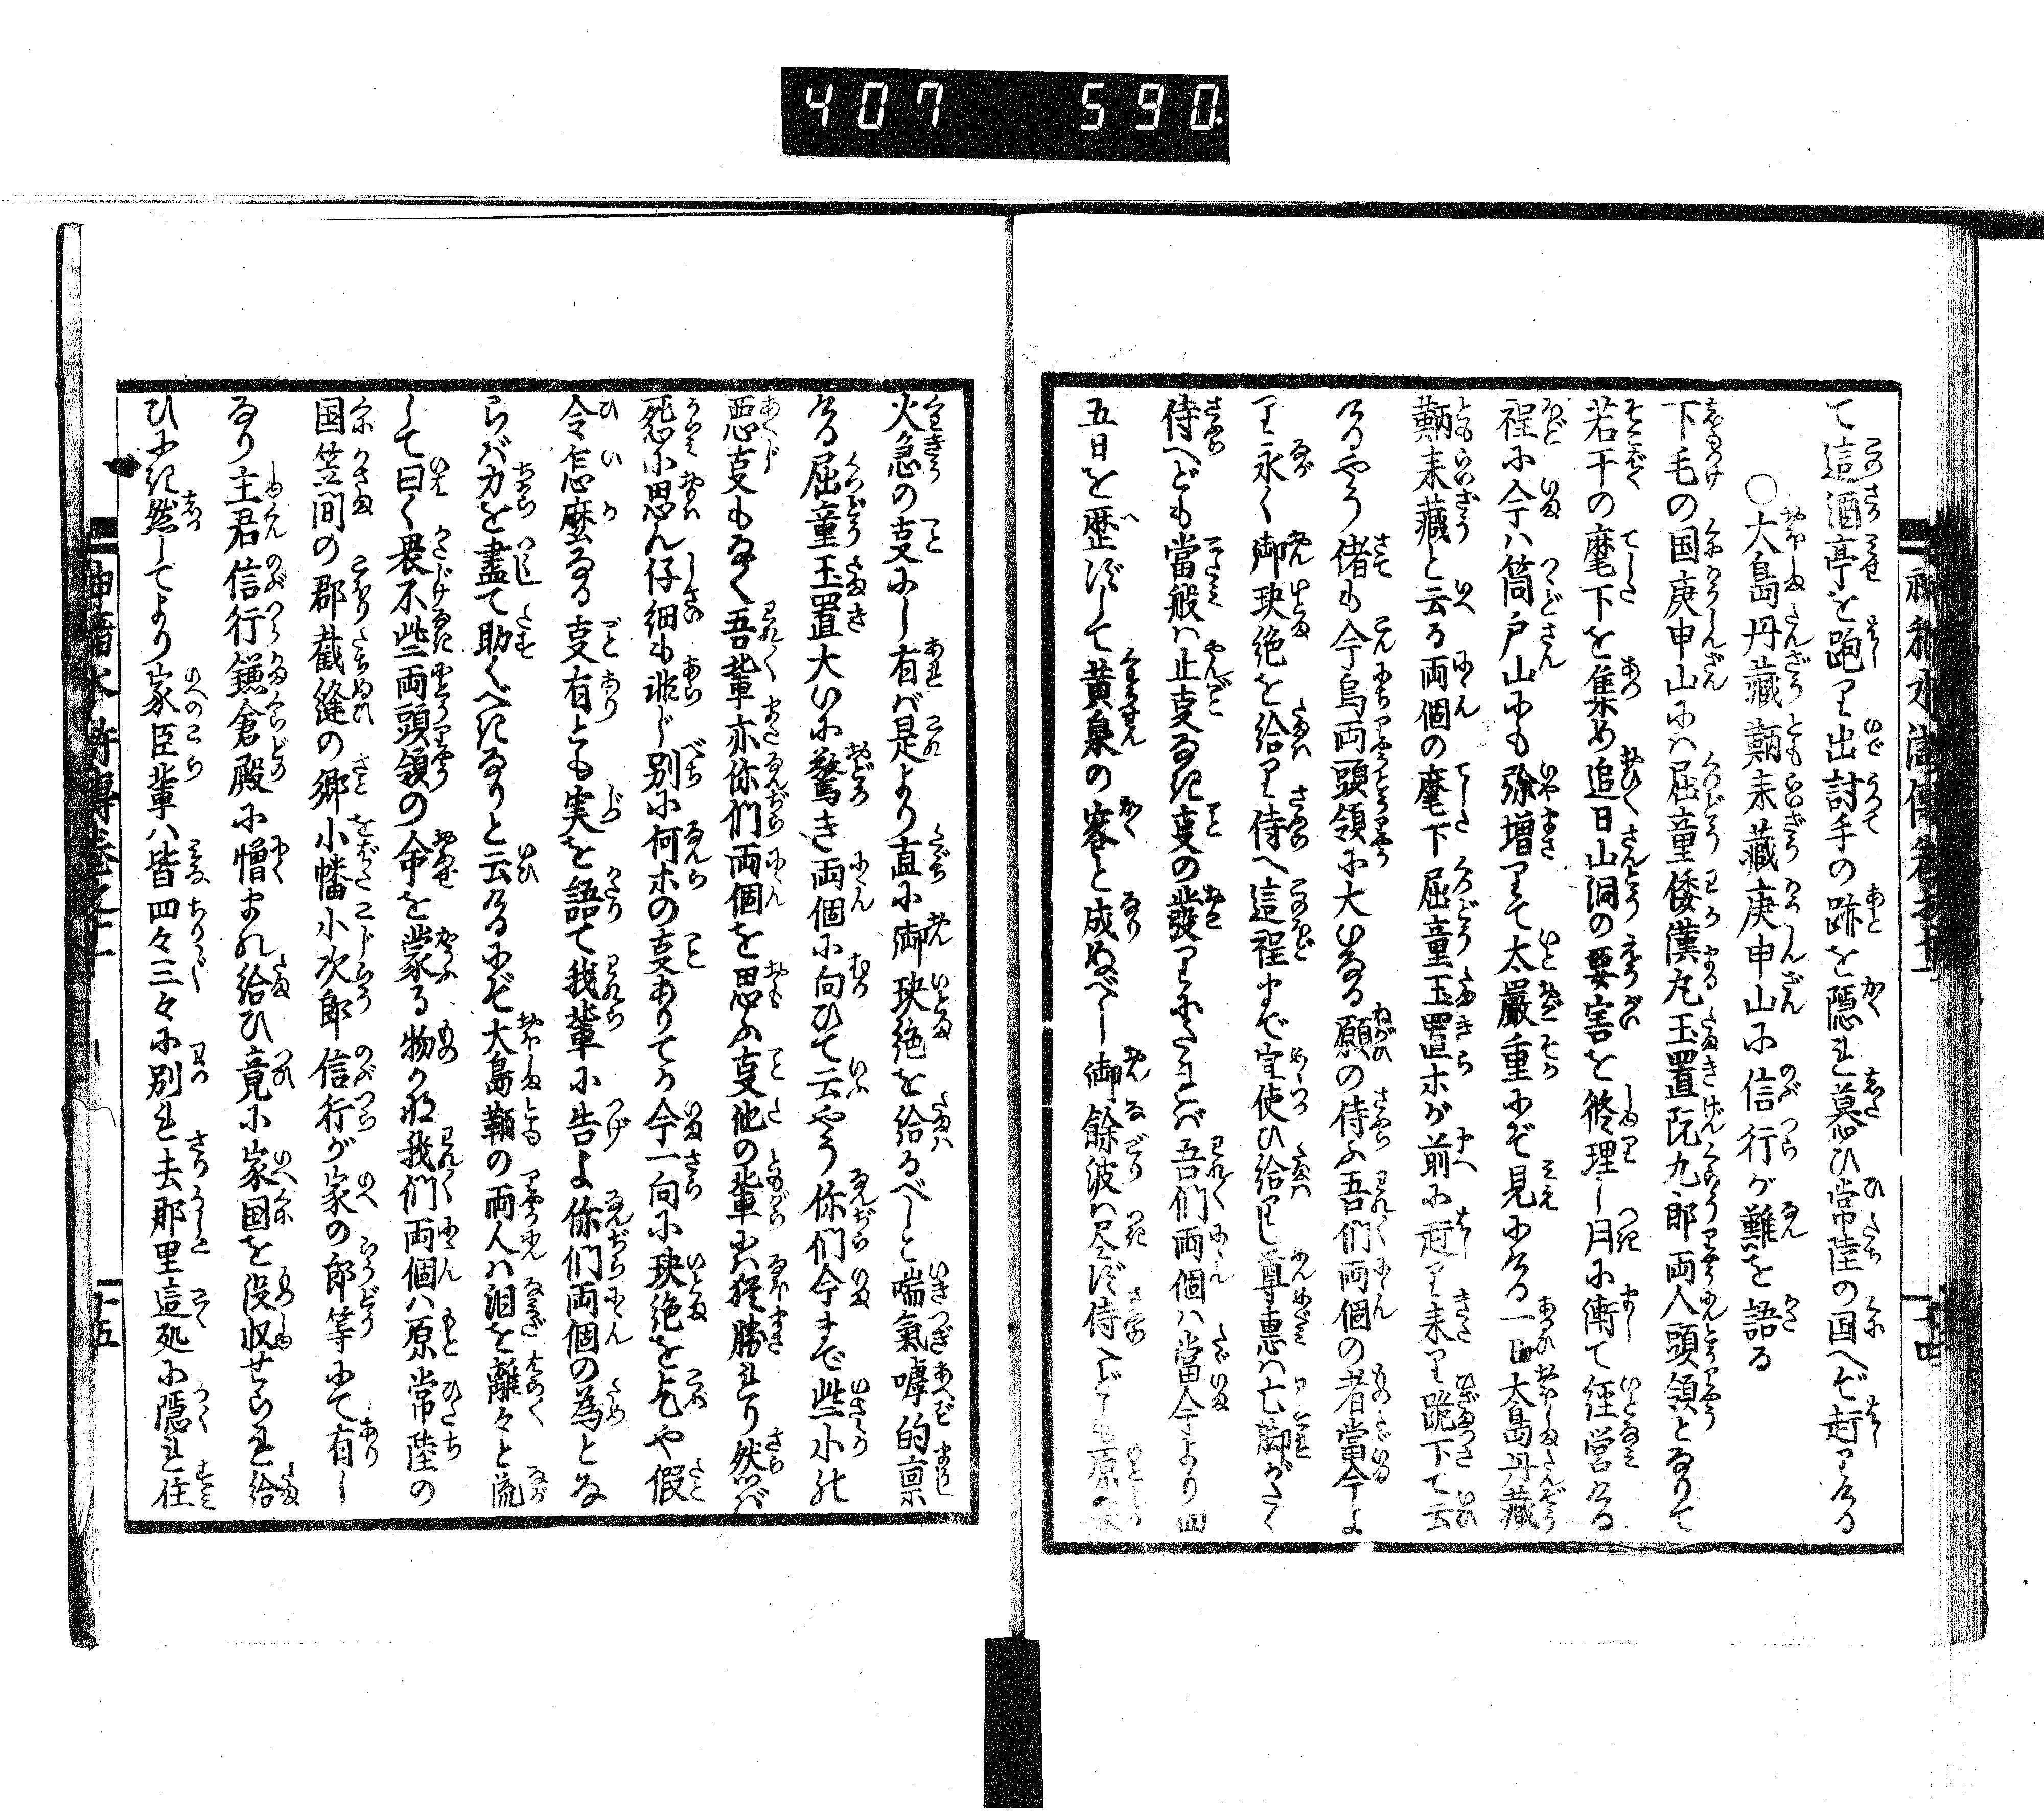 407 590
て這酒亭を跑り出討手の跡を隠れ慕ひ常陸の国へぞ赶りける
○大島丹藏鞆来藏庚申山に信行が難を語る
下毛の国庚申山にハ屈童倭漢丸玉置阮九郎両人頭領となりて
若干の麾下を集め追日山洞の要害を修理し月に漸て経営ける
程に今ハ筒戸山にも弥増りて太嚴重にぞ見にける一日大島丹藏
鞆来藏と云る両個の麾下屈童玉置ホが前に赶り来り跪下て云
けるやう偖も今烏両頭領に大いなる願の侍ふ吾們両個の者當今よ
り永く御玦絶を給り侍へ這程まで宜使ひ給りし尊惠ハ亡脚がたく
侍へども當般ハ止叓なき叓の發りにたれバ吾們両個ハ當今より四
五日を歴ずして黄泉の客と成ぬべし御餘波ハ尽ず侍へども原来
火急の叓にし有バ是より直に御玦絶を給るべしと喘氣嘑的禀
ける屈童玉置大いに驚き両個に向ひて云やう你們今まで些小の
悪叓もなく吾輩亦你們両個を思ふ叓他の輩にハ猶勝れり然バ
死怨に思ん仔細も非じ別に何ホの叓ありてか今一向に玦絶を乞や假
令怎麼なる叓有とも実を語て我輩に告よ你們両個の為とな
らバ力を盡て助くべきなりと云けるにぞ大島鞆の両人ハ泪を離々と流
して曰く畏不些両頭領の命を蒙る物かな我們両個ハ原常陸の
国笠間の郡截縫の郷小幡小次郎信行が家の郎等にて有し
なり主君信行鎌倉殿に憎まれ給ひ竟に家国を没収せられ給
ひにき然してより家臣輩ハ皆四々三々に別れ去那里這処に隠れ住
十五